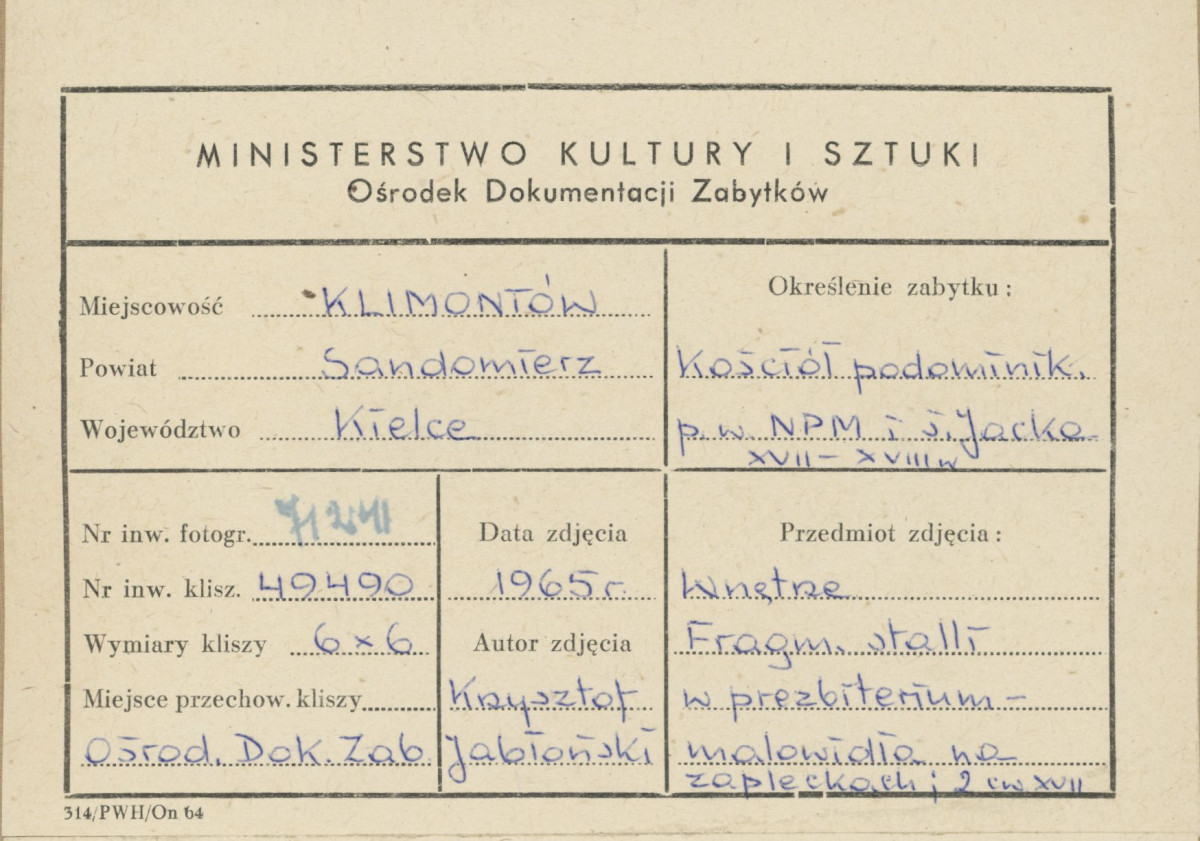 MINISTERSTWO KULTURY I SZTUKI
Ośrodek Dokumentacji Zabytków
Miejscowość KLIMONTÓW
Powiat Sandomierz
Województwo Kielce
Określenie zabytku:
Kościół podominik.
p.w. NPM i ś. Jacka
XVII - XVIII w
Nr inw. fotogr. 71241
Nr inw. klisz. 49490
Wymiary kliszy 6x6
Miejsce przechow. kliszy
Ośrod. Dok. Zab.
Data zdjęcia
1965 r.
Autor zdjęcia
Krzysztof
Jabłoński
Przedmiot zdjęcia:
Wnętrze
Fragm. stalli
w prezbiterium -
malowidła na
zapleckach; 2 ćw XVII
314/PWH/On 64